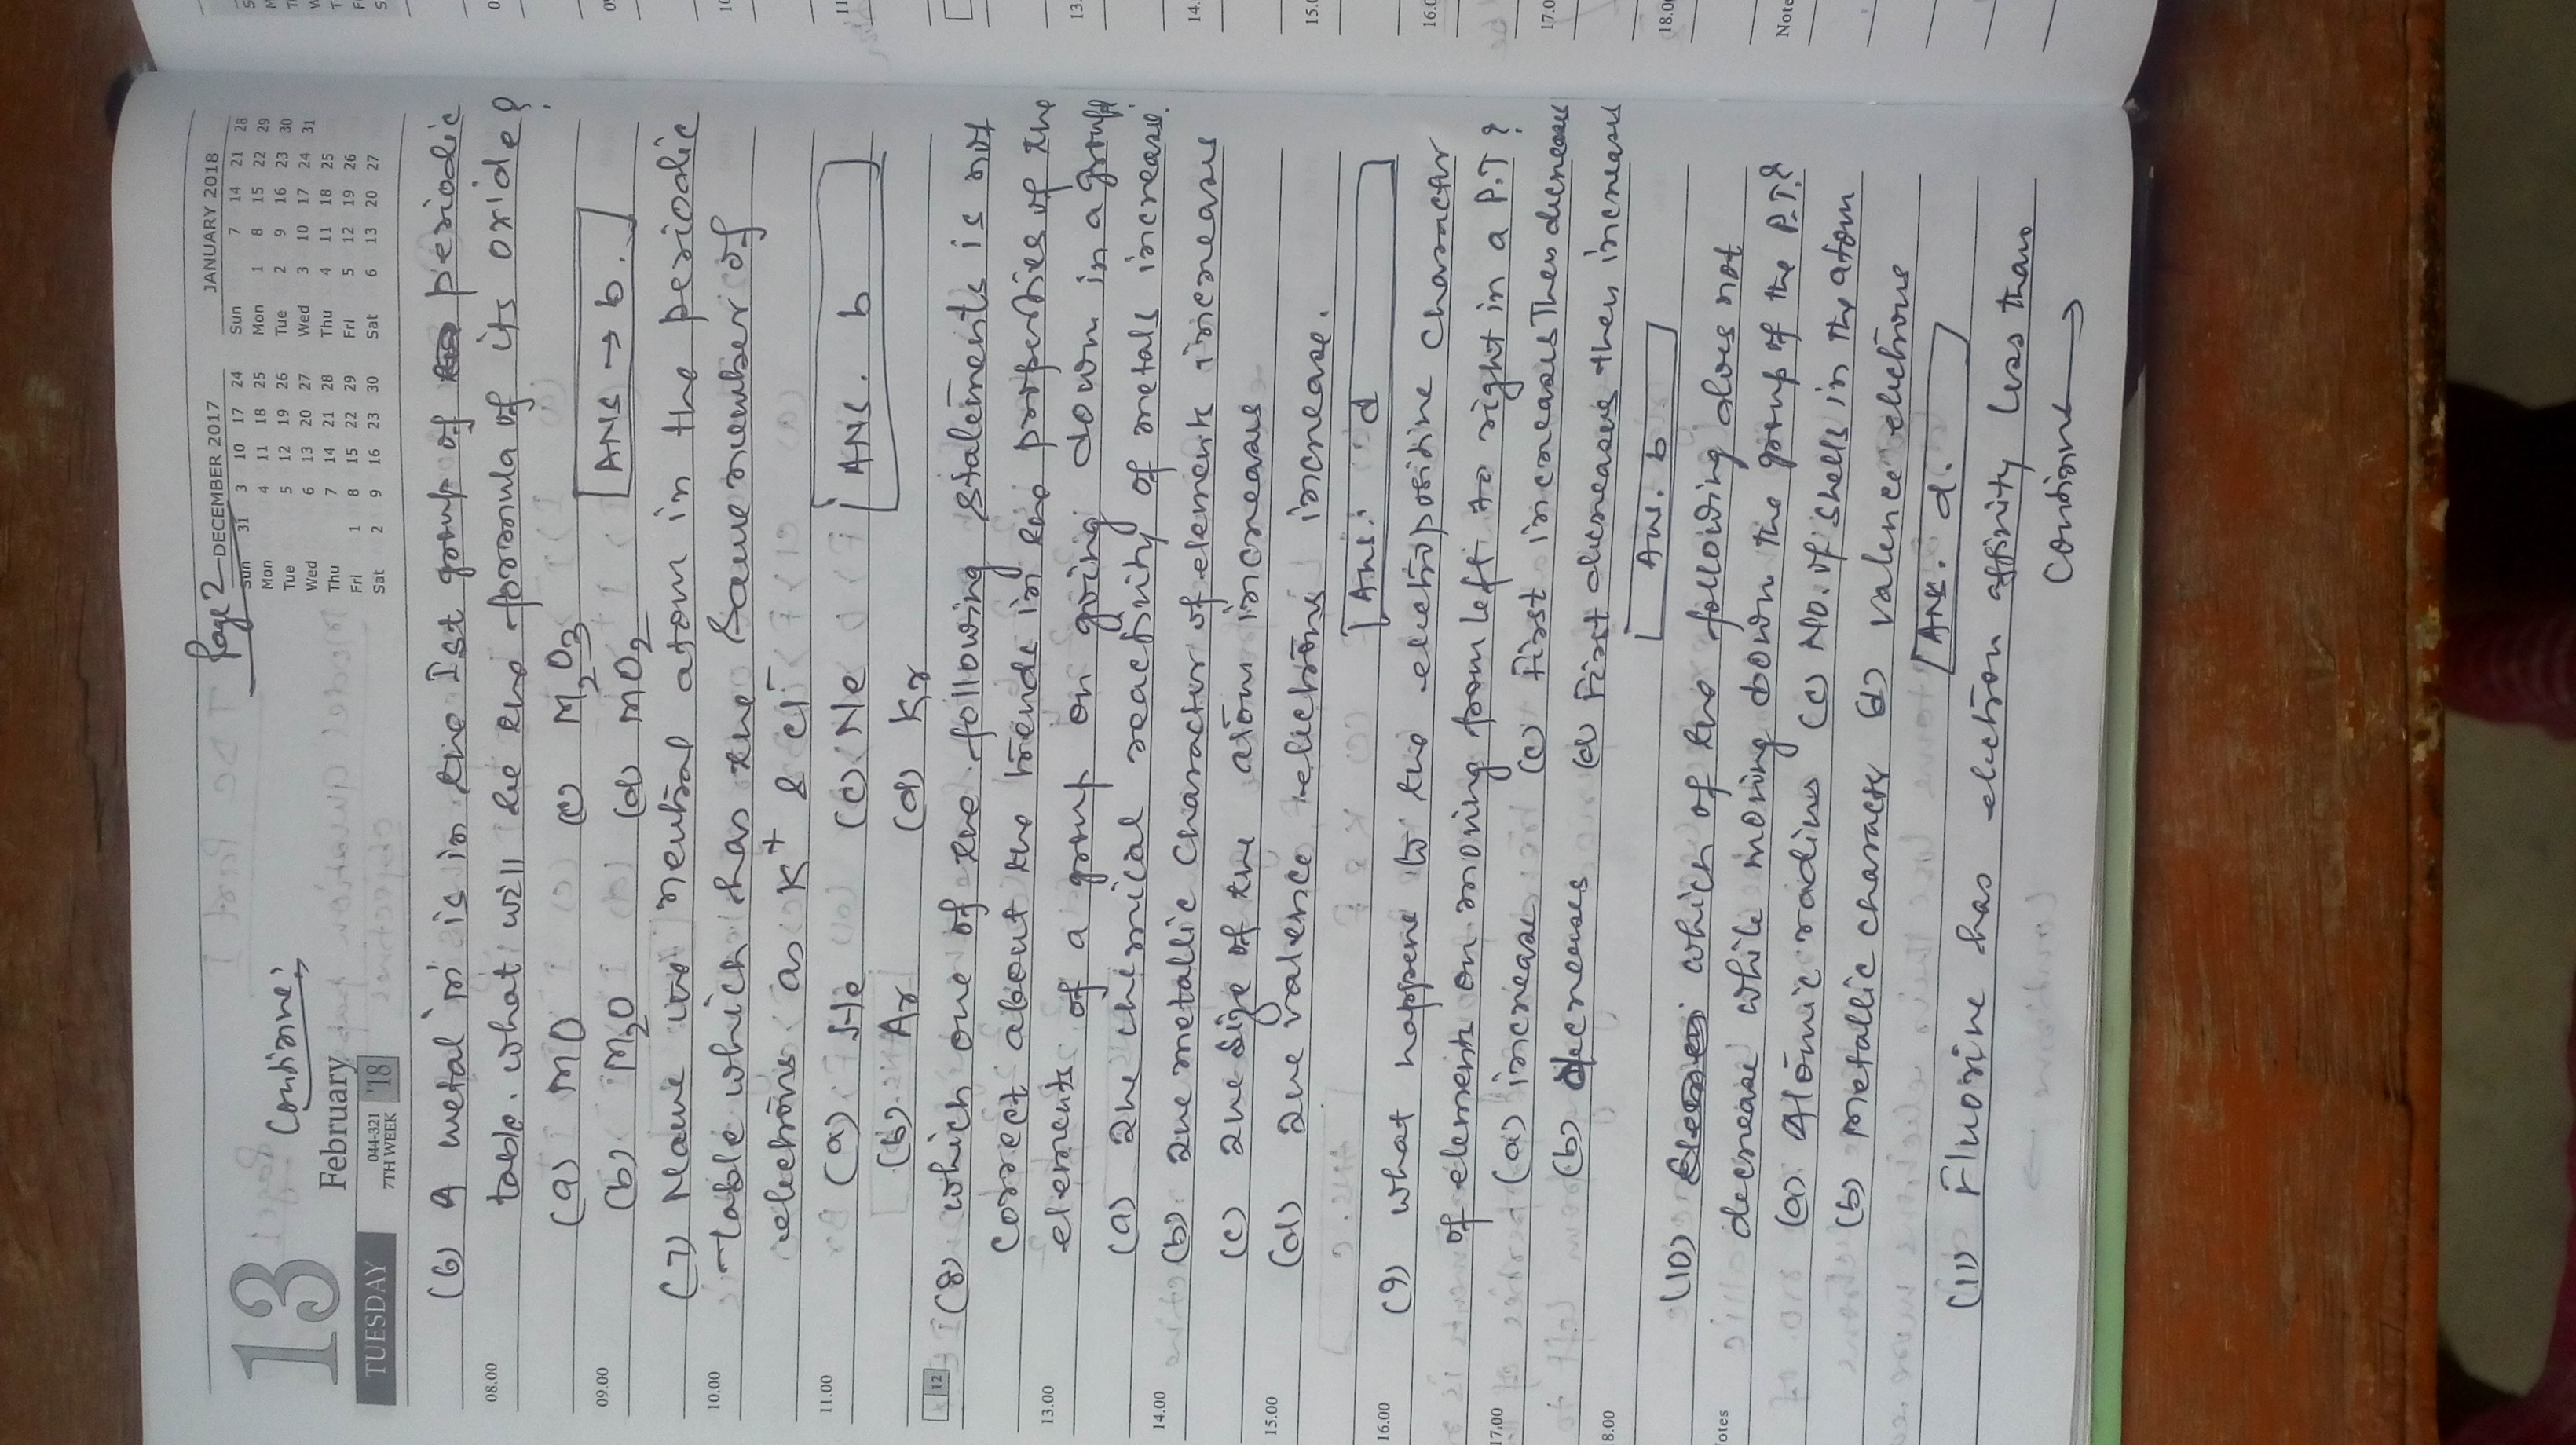 Page 2
Continue;
13
February
TUESDAY
044-321
7TH WEEK
'18
DECEMBER 2017
Sun 31 3 10 17 24
Mon 4 11 18 25
Tue 5 12 19 26
Wed 6 13 20 27
Thu 7 14 21 28
Fri 1 8 15 22 29
Sat 2 9 16 23 30
JANUARY 2018
Sun 7 14 21 28
Mon 1 8 15 22 29
Tue 2 9 16 23 30
Wed 3 10 17 24 31
Thu 4 11 18 25
Fri 5 12 19 26
Sat 6 13 20 27
(6) A metal 'm' is in the Ist group of periodic
08.00
table. what will be the formula of its oxide?
(a) MO (c) M2O3
09.00
(b) M2O (d) MO2 ANS → b.
(7) Name the neutral atom in the periodic
10.00
table which has the same number of
electrons as K+ & Cl-
11.00
(a) He (c) Ne
(b) Ar (d) Kr ANS. b
12
(8) which one of the following statements is not
correct about the trends in the properties of the
13.00
elements of a group on going down in a group.
(a) The chemical reactivity of metals increase.
14.00
(b) The metallic character of elements increases
(c) The size of the atom increases
15.00
(d) The valence electrons increase.
Ans: d
16.00
(9) what happens to the electropositive character
of elements on moving from left to right in a P.T?
17.00
(a) increases (c) First increases Then decreases
(b) decreases (d) First decreases then increases
8.00
Ans. b
(10) which of the following does not
otes
decrease while moving down the group of the P.T?
(a) Atomic radius (c) No. of shells in the atom
(b) metallic character d) valence electrons
Ans. d.
(11) Fluorine has electron affinity less than
Continue →
13.
14.
15.0
16.0
17.0
18.0
Note